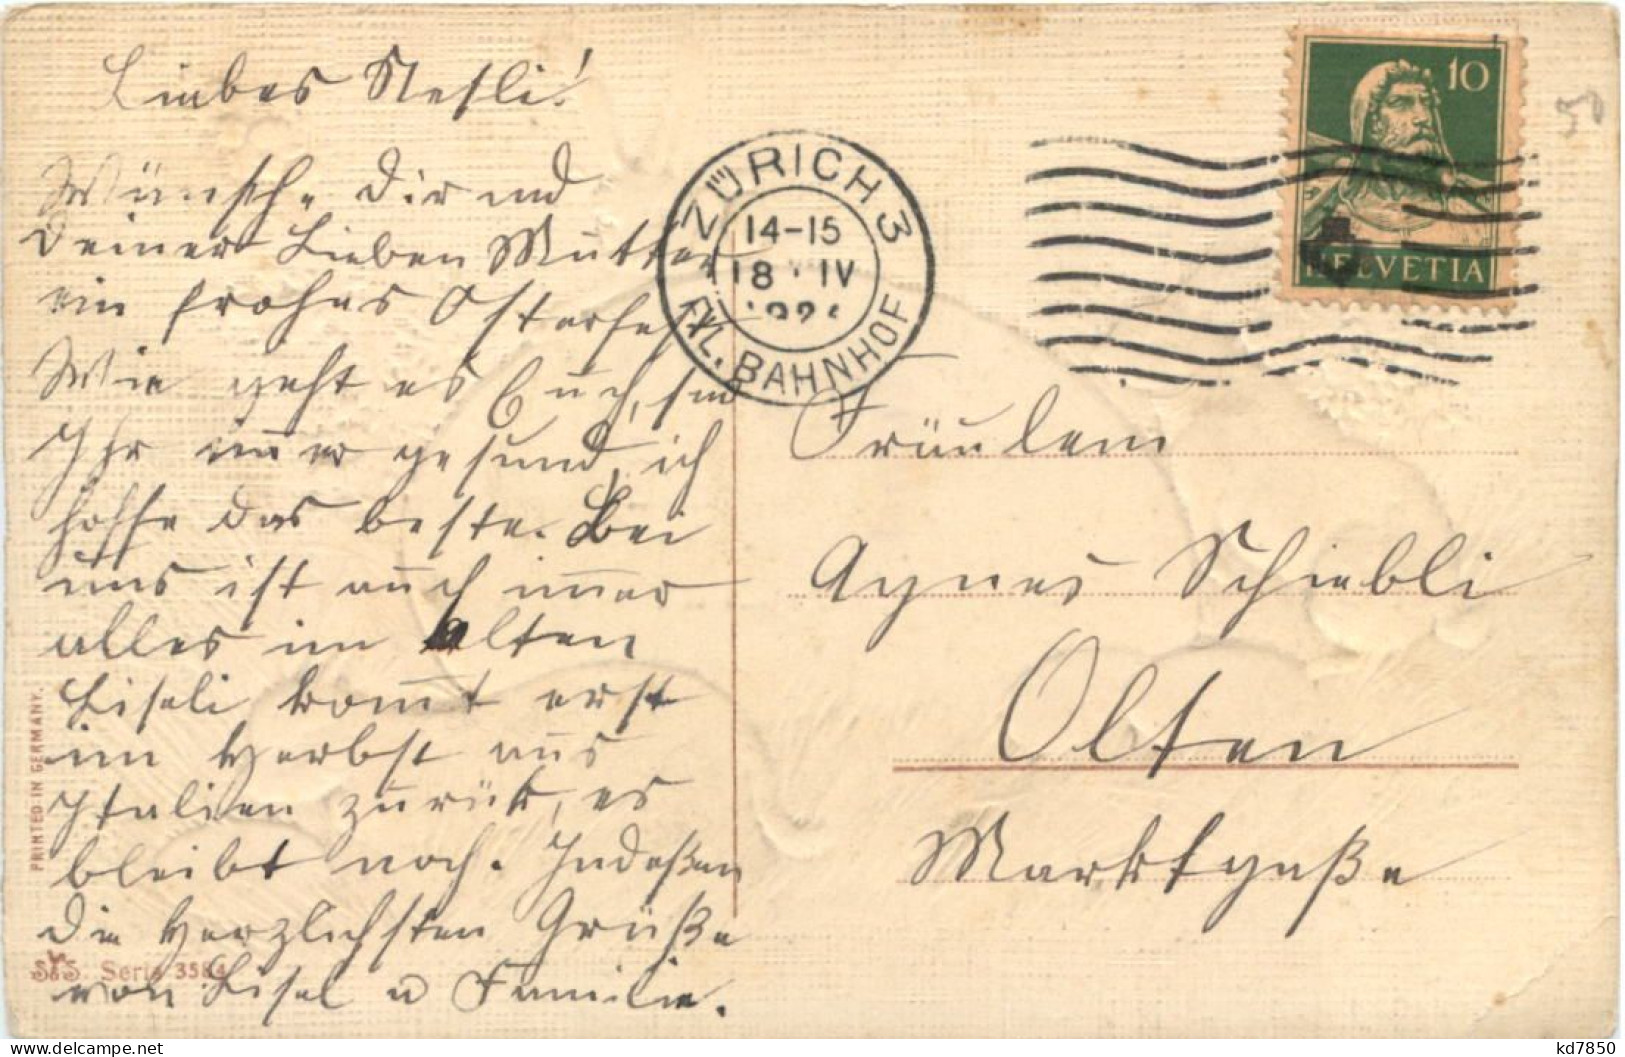 Liebes Nesli!
Wünsche Dir und
Deiner Lieben Mutter
ein frohes Osterfest
Wie geht es Euch, sind
Ihr im̄er gesund, ich
hoffe das beste. Bei
uns ist auch im̄er
alles im alten
Liseli kom̄t erst
im Herbst aus
Italien zurück, es
bleibt noch. Indeßen
die Herzlichsten Grüße
von Lisel u Familie.
PRINTED IN GERMANY.
S&S. Serie 3584
ZÜRICH 3
14-15
18.IV
BAHNHOF
10
HELVETIA
50
Fräulein
Agnes Schiebli
Olten
Marktgaße
kd7850